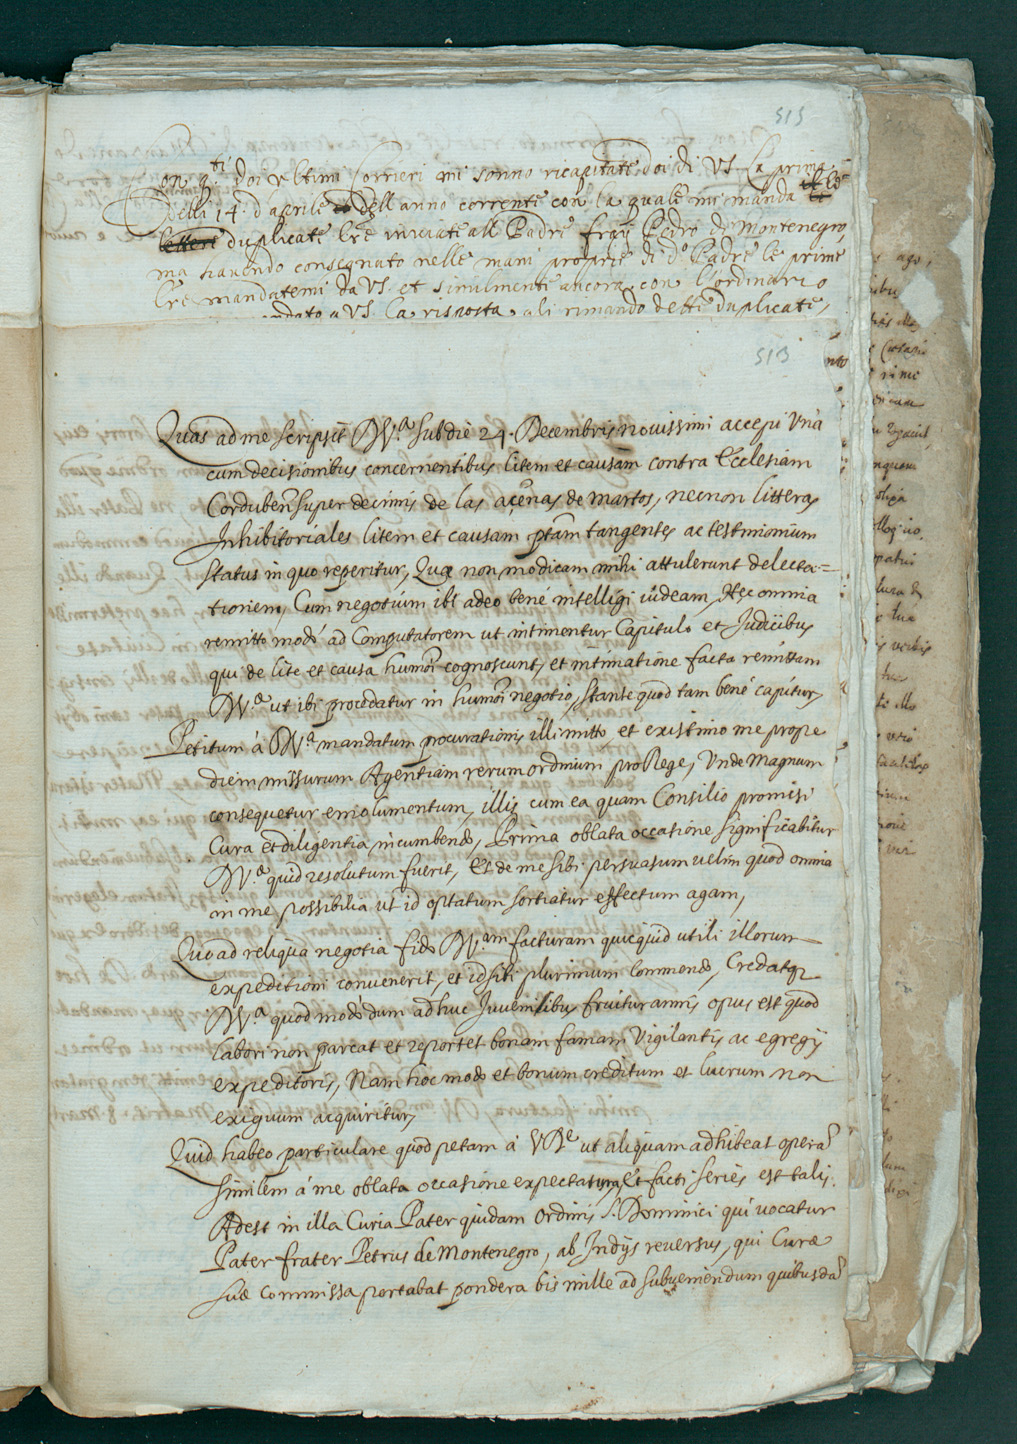 515
Con q.ti doi ultimi Corrieri mi sonno ricapitate doi di VS. La prima
delli 14. d'aprile dell anno corrente con la quale mi manda
lettere duplicate lre inviate all Padre fray Pedro de Montenegro,
ma havendo consegnato nelle mani proprie di d.o Padre le prime
lre mandatemi da VS. et similmente ancora con l'ordinario
dato a VS. la risposta, gli rimando dette duplicate,
513
Quas ad me scripsit DV.a sub die 24. Decembris novissimi accepi Una
cum decisionibus concernentibus litem et causam contra Ecclesiam
Corduben super decimis de las açenas de Martos, necnon litteras
Inhibitoriales litem et causam ptam tangentes ac testimonium
status in quo reperitur, Quæ non modicam mihi attulerunt delecta=
tionem, Cum negotium ibi adeo bené intelligi videam, Hęc omnia
remitto modó ad Computatorem ut intimentur Capitulo et Judicibus
qui de lite et causa humoi cognoscunt, et intimatione facta remittam
DV.e ut ibi procedatur in humoi negotio, stante quod tam bené capitur,
Petitum á DV.a mandatum procurationis illi mitto, et existimo me prope
diem missurum Agentiam rerum ordinum pro Rege, Unde Magnum
consequetur emolumentum, illis cum ea quam Consilio promisi
Cura et diligentia incumbendo, Prima oblata occasione significabitur
DV.e quid resolutum fuerit, Et de me sibi persuasum velim quod omnia
in me possibilia ut id optatum sortiatur effectum agam,
Quo ad reliqua negotia fido DV.am facturam quicquid utili illorum
expeditioni convenerit, et id sibi plurimum Commendo, Credatq
DV.a quod modó dum adhuc Juvenilibus fruitur annis opus est quod
labori non parcat et reportet bonam famam Vigilantis ac egregij
expeditoris, Nam hoc modo et bonum creditum et lucrum non
exiguum acquiritur,
Quid habeo particulare quod petam á VDe ut aliquam adhibeat opera
similem á me oblata occasione expectatura, Et facti series est talis.
Adest in illa Curia Pater quidam ordinis S. Dominici qui vocatur
Pater frater Petrus de Montenegro, ab Indijs reversus, qui Curæ
suæ commissa portabat pondera bis mille ad subveniendum quibusda